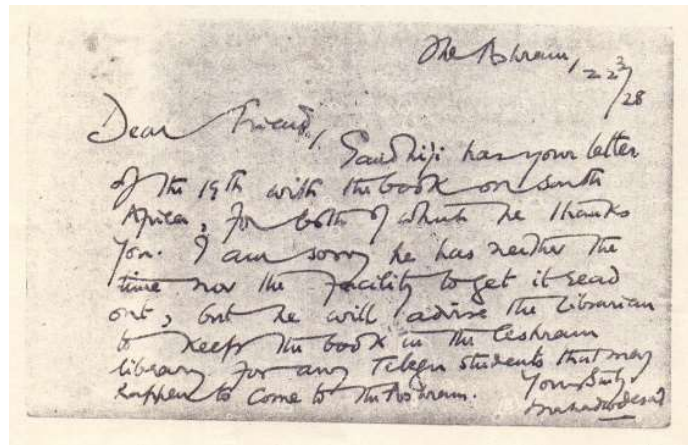 The Ashram, 22/3/28
Dear Friend,
Gandhiji has your letter
of the 19th with the book on South
Africa, for both of which he thanks
you. I am sorry he has neither the
time nor the facility to get it read
out, but he will advise the librarian
to keep the book in the Ashram
library for any Telegu students that may
happen to come to the Ashram.
Yours Sinly.
Mahadev Desai